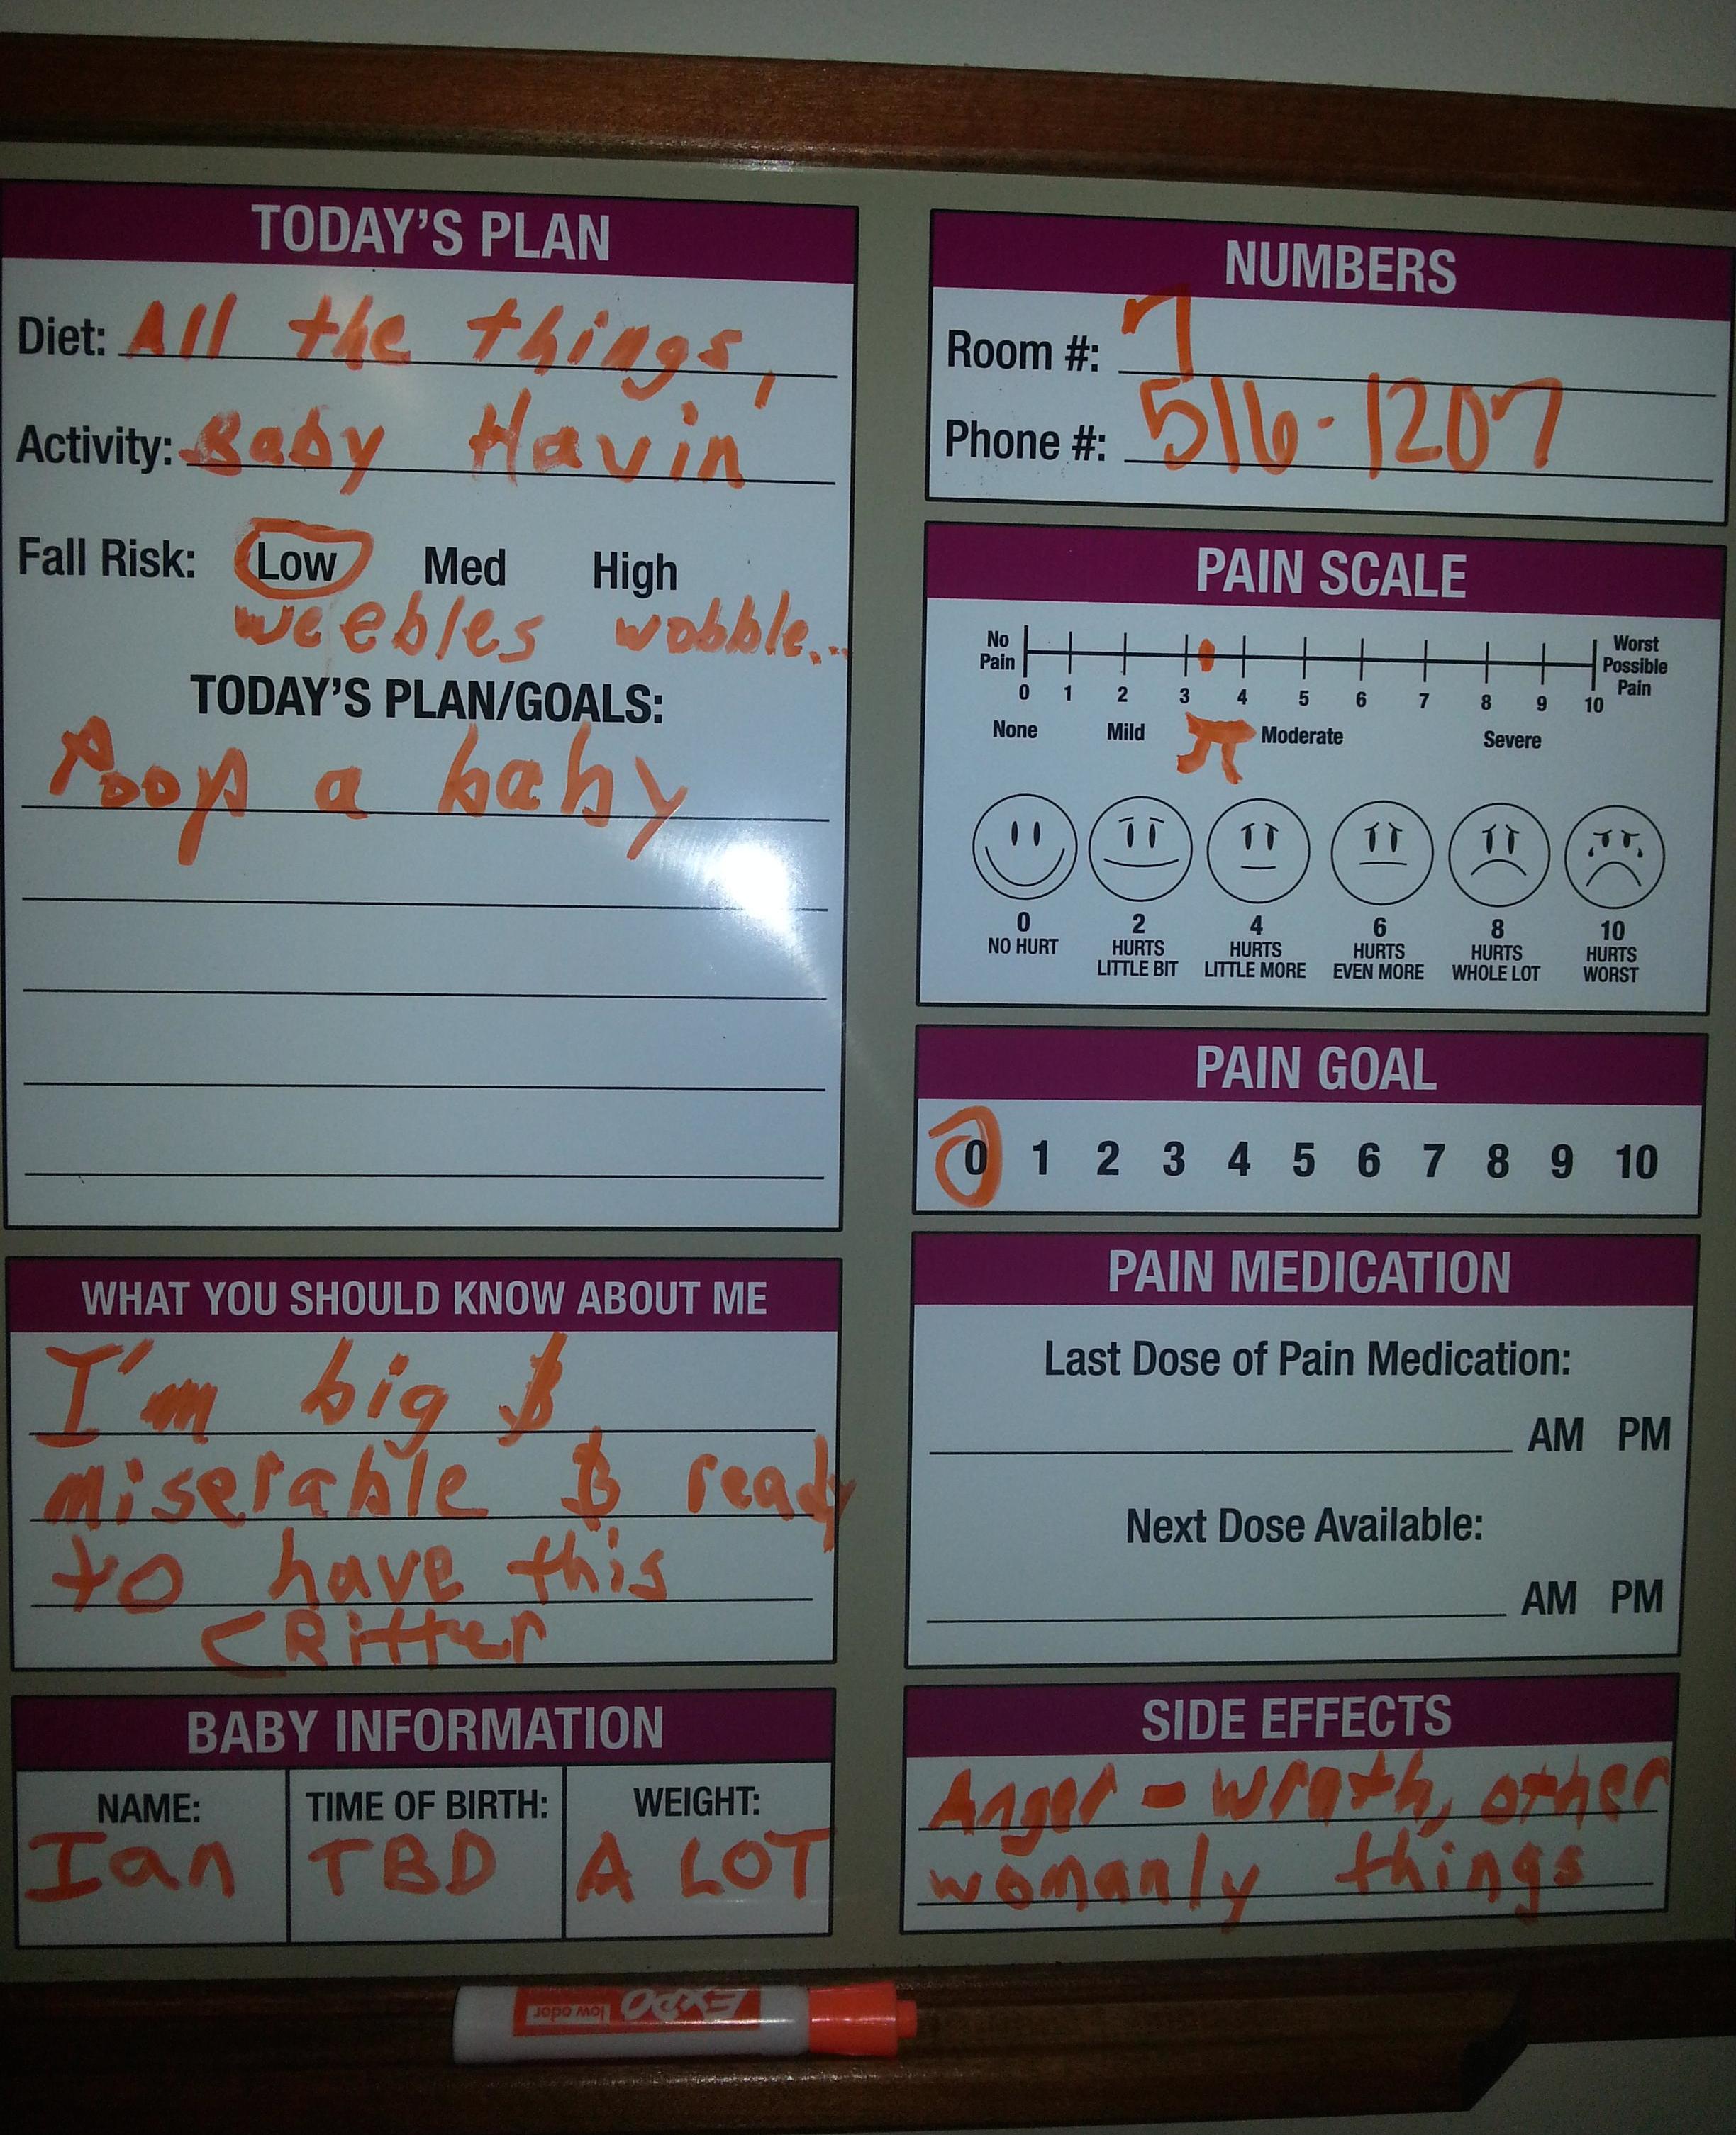 TODAY'S PLAN
Diet: All the things,
Activity: Baby Havin
Fall Risk: Low Med High
weebles wobble...
TODAY'S PLAN/GOALS:
Poop a baby
WHAT YOU SHOULD KNOW ABOUT ME
I'm big &
miserable & ready
to have this
CRitter
BABY INFORMATION
NAME: TIME OF BIRTH: WEIGHT:
Ian TBD A LOT
NUMBERS
Room #: 7
Phone #: 516-1207
PAIN SCALE
No Pain Worst Possible Pain
0 1 2 3 4 5 6 7 8 9 10
None Mild π Moderate Severe
0 2 4 6 8 10
NO HURT HURTS HURTS HURTS HURTS HURTS
LITTLE BIT LITTLE MORE EVEN MORE WHOLE LOT WORST
PAIN GOAL
0 1 2 3 4 5 6 7 8 9 10
PAIN MEDICATION
Last Dose of Pain Medication:
AM PM
Next Dose Available:
AM PM
SIDE EFFECTS
Anger - wrath, other
womanly things
EXPO low odor